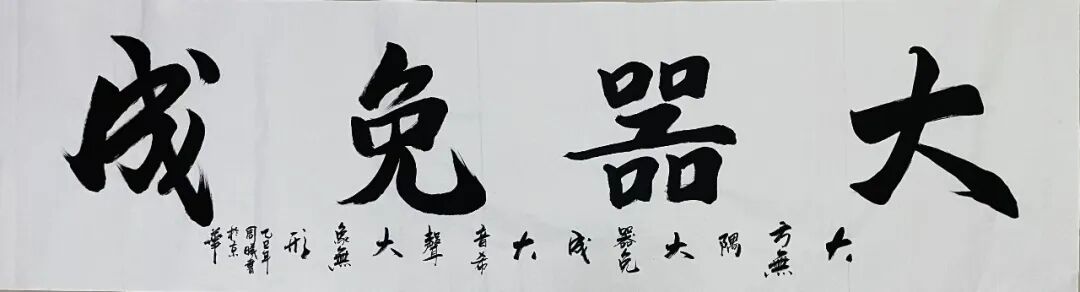 大器免成
大方無隅大器免成大音希聲大象無形
乙巳年
周曦書
於京
華